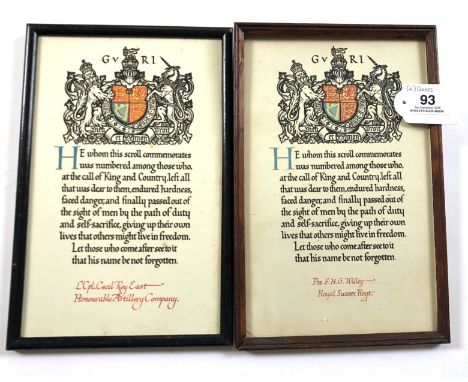 G V R I
HE whom this scroll commemorates
was numbered among those who,
at the call of King and Country, left all
that was dear to them, endured hardness,
faced danger, and finally passed out of
the sight of men by the path of duty
and self-sacrifice, giving up their own
lives that others might live in freedom.
Let those who come after see to it
that his name be not forgotten.
L/Cpl. Cecil Roy East
Honourable Artillery Company.
G V R I
HE whom this scroll commemorates
was numbered among those who,
at the call of King and Country, left all
that was dear to them, endured hardness,
faced danger, and finally passed out of
the sight of men by the path of duty
and self-sacrifice, giving up their own
lives that others might live in freedom.
Let those who come after see to it
that his name be not forgotten.
Pte F.H.G. Willey
Royal Sussex Regt.
93